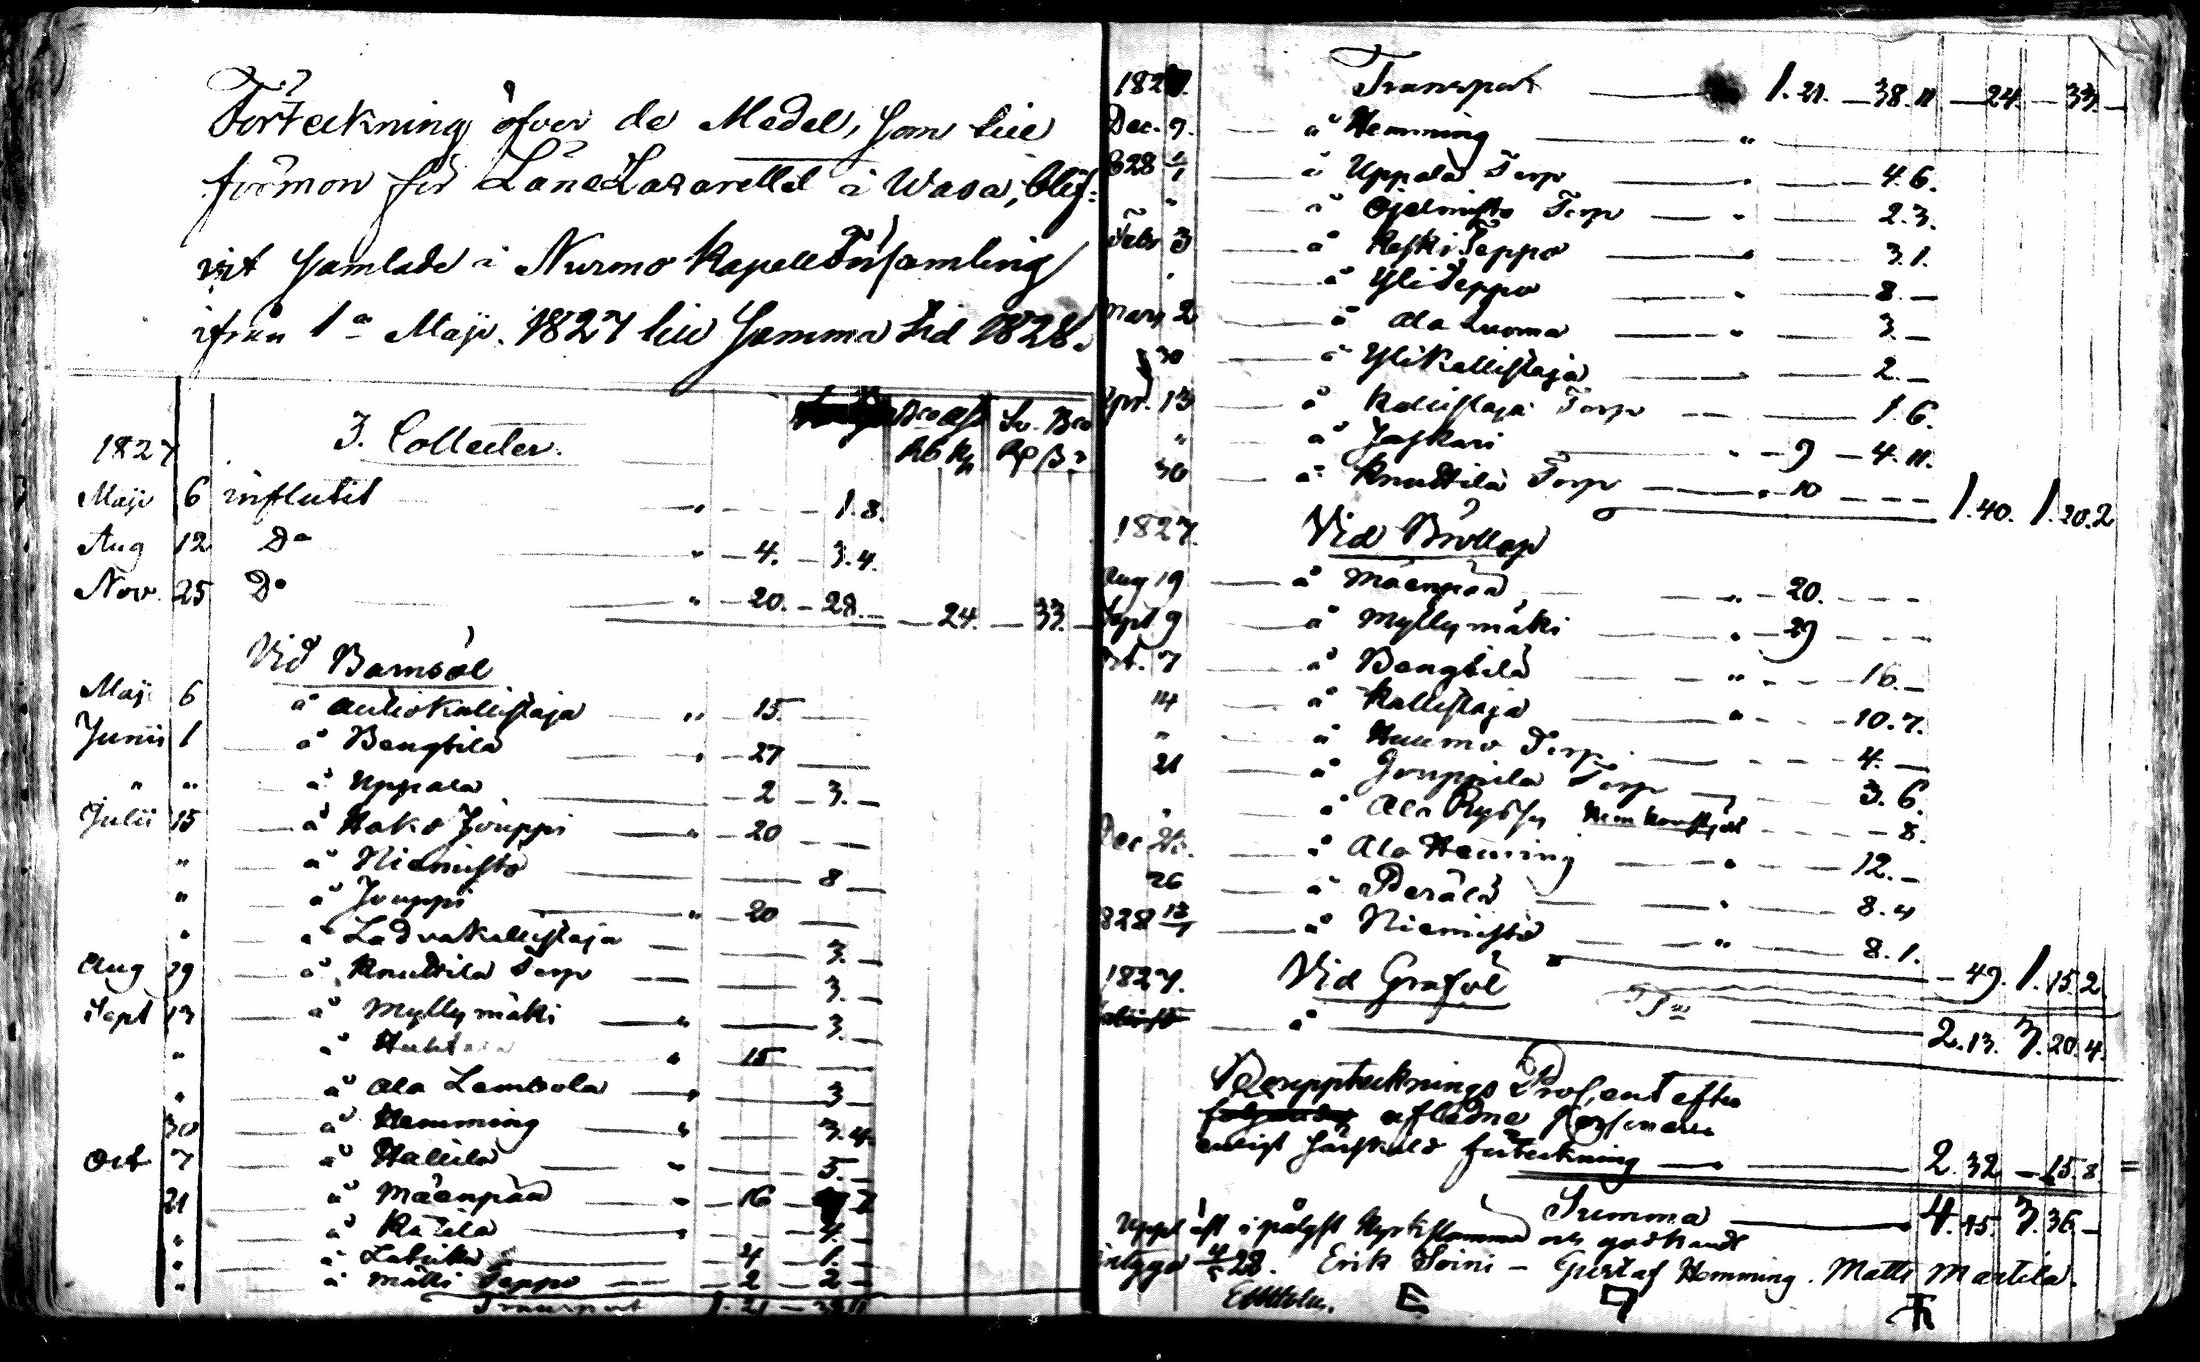 Förteckning öfver de Medel, som till
förmon för LäneLazarettet i Wasa, blif-
vit samlade i Nurmo Kapell Församling
ifrån 1a Maji. 1827 till samma tid 1828.
1827 3. Collecter. Rb K Sv. Bco
Maji 6 influtit " 1.8.
Aug 12 Do " 4. 3.4.
Nov. 25 Do " 20. 28. 24. 33.
Vid Barnsöl
Maji 6 å Autiokallistaja " 15.
Junii 1 å Bengtila " 27
" " å Uppala 2 3.
Julii 15 å Hako Jouppi " 20
" å Niemistö 8
" å Jouppi " 20
" å Ladvakallistaja 3.
Aug 29 å Knuttila Torp 3.
Sept 13 å Myllymäki " 3.
" å " 15
" å Ala Lembola " 3
30 å Hemming " 3.4.
Oct 7 å Hallila " 5.
21 å Mäenpää " 16
" å 4.
" å 4 1.
" å Matti Seppo 2 2
Transport 1. 21
1827. Transport 1. 21. 38. 11 24. 33.
Dec. 9. å Hemming "
828 å Uppala Torp " 4. 6.
" å Torp " 2. 3.
Febr 3 å Keski Seppo " 3. 1.
" å Yli Seppo " 8.
Mars 2 å Ala Luoma " 3.
30 å Ylikallistaja " 2.
Apr. 13 å Kallistaja Torp 1. 6.
" å Jaskari " 9 4. 11.
30 å Knuttila Torp " 10 1. 40. 1. 20. 2
1827. Vid Bröllop
Aug 19 å Mäenpää " 20.
Sept 9 å Myllymäki " 29
Oct. 7 å Bengtila " 16.
14 å Kallistaja " 10. 7.
" å Torp 4.
21 å Jouppila Torp 3. 6.
" å Ala 8.
Dec 26. å Ala Heming " 12.
26 å Perälä " 8. 4
828 13/1 å Niemistö " 8. 1.
49. 1. 15. 2
1827. Vid Graföl
å 2. 13. 7. 20. 4.
Berupptecknings Procent efter
aflidne Personer
enligt särskild förteckning 2. 32 15. 8
Summa 4. 45. 7. 36.
Uppläst i pålyst Kyrkstämma och godkändt
intyga 28. Erik Soini – Gustaf Hemming. Matts Martila.